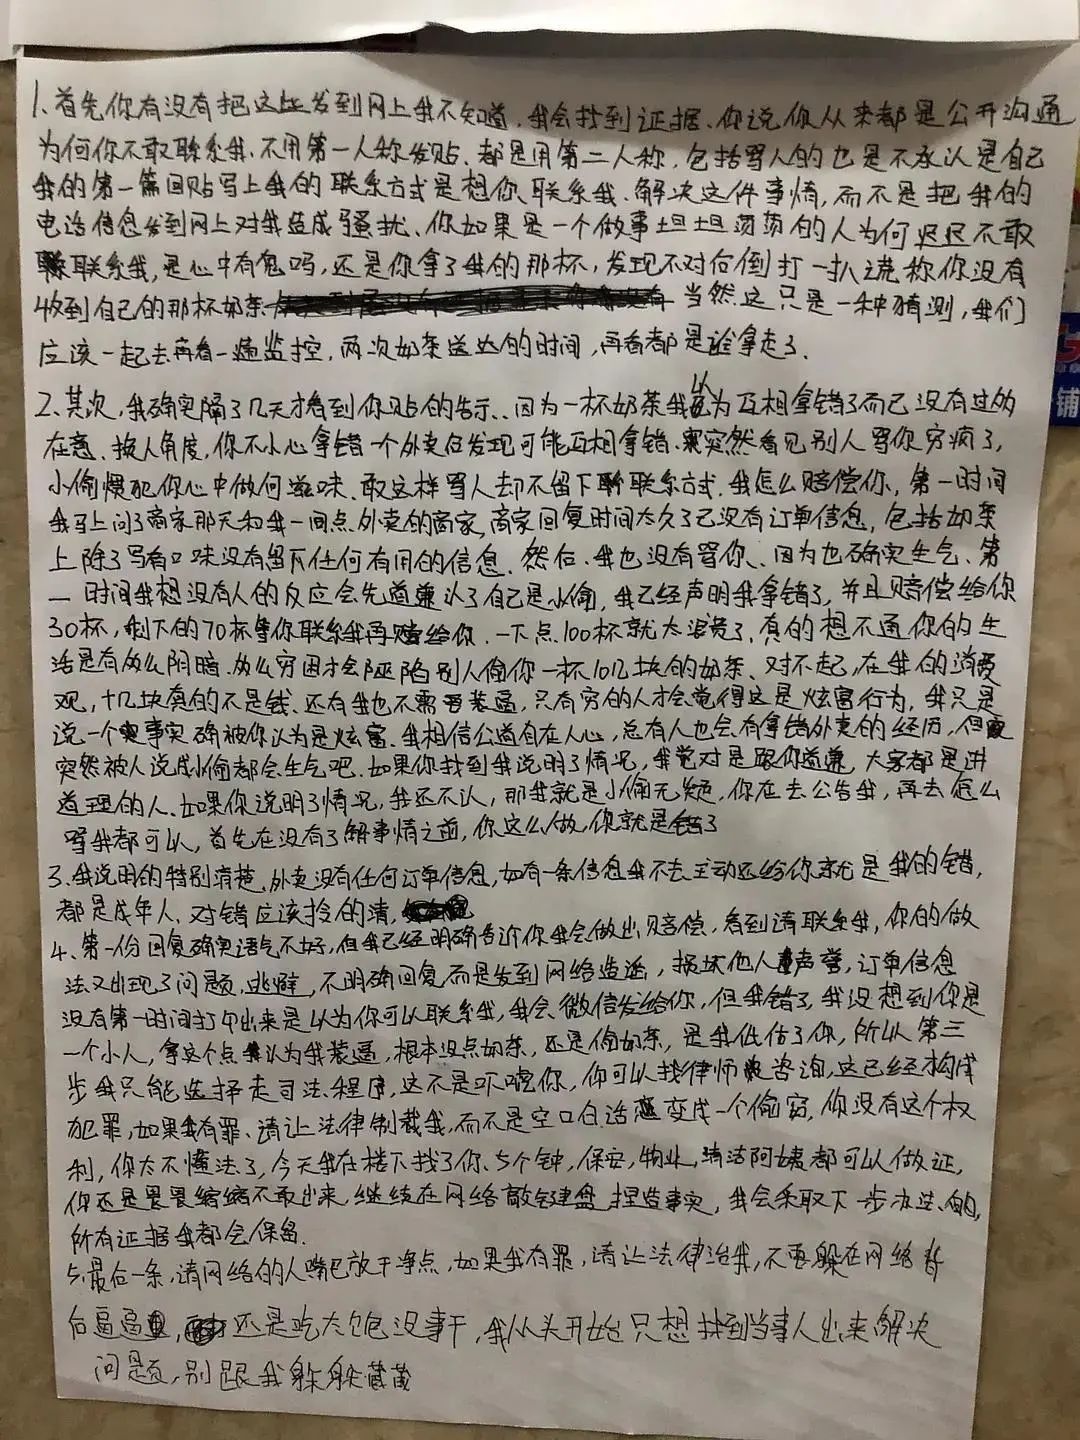 1、首先你有没有把这些发到网上我不知道,我会找到证据、你说你从来都是公开沟通
为何你不敢联系我、不用第一人称发贴、都是用第二人称,包括骂人的也是不承认是自己
我的第一篇回贴写上我的联系方式是想你、联系我、解决这件事情,而不是把我的
电话信息发到网上对我造成骚扰、你如果是一个做事坦坦荡荡的人为何迟迟不敢
联系我,是心中有鬼吗,还是你拿了我的那杯,发现不对后倒打一扒谎称你没有
收到自己的那杯奶茶 当然这只是一种猜测,我们
应该一起去再看一遍监控,两次奶茶送达的时间,再看都是谁拿走了、
2、其次,我确实隔了几天才看到你贴的告示、因为一杯奶茶我以为互相拿错了而已没有过的
在意、换人角度,你不小心拿错一个外卖后发现可能互相拿错、突然看见别人骂你穷疯了,
小偷惯犯你心中做何滋味、敢这样骂人却不留下联系方式、我怎么赔偿你,第一时间
我马上问了商家那天和我一间点外卖的商家、商家回复时间太久了已没有订单信息,包括奶茶
上除了写有口味没有留下任何有用的信息、然后、我也没有骂你、因为也确实生气、第
一时间我想没有人的反应会先道谦认了自己是小偷,我已经声明我拿错了,并且赔偿给你
30杯,剩下的70杯等你联系我再赔给你、一下点100杯就太浪费了、真的想不通你的生
活是有多么阴暗、多么穷困才会诬陷别人偷你一杯10几块的奶茶、对不起,在我的消费
观,十几块真的不是钱、还有我也不需要装逼,只有穷的人才会觉得这是炫富行为,我只是
说一个事实确被你认为是炫富、我相信公道自在人心,总有人也会有拿错外卖的经历,但
突然被人说成小偷都会生气吧、如果你找到我说明了情况,我觉对是跟你道谦,大家都是讲
道理的人、如果你说明了情况,我还不认,那我就是小偷无疑,你在去公告我,再去怎么
骂我都可以,首先在没有了解事情之前,你这么做,你就是错了
3、我说明的特别清楚、外卖没有任何订单信息,如有一条信息我不去主动还给你就是我的错,
都是成年人、对错应该拎的清,
4、第一份回复确实语气不好,但我已经明确告诉你我会做出赔偿,看到请联系我,你的做
法又出现了问题,逃避,不明确回复而是发到网络造谣,损坏他人声誉,订单信息
没有第一时间打印出来是以为你可以联系我,我会微信发给你,但我错了,我没想到你是
一个小人,拿这个点认为我装逼,根本没点奶茶,还是偷奶茶,是我低估了你,所以第三
步我只能选择走司法程序,这不是吓唬你,你可以找律师咨询,这已经构成
犯罪,如果我有罪、请让法律制裁我,而不是空口白话变成一个偷窃,你没有这个权
利,你太不懂法了,今天我在楼下找了你、5个钟,保安,物业,清洁阿姨都可以做证,
你还是畏畏缩缩不敢出来,继续在网络敲键盘捏造事实,我会采取下一步办法、的,
所有证据我都会保留、
5、最后一条,请网络的人嘴巴放干净点,如果我有罪,请让法律治我,不要躲在网络背
后逼逼,还是吃太饱没事干,我从头开始只想找到当事人出来解决
问题,别跟我躲躲藏藏
铺